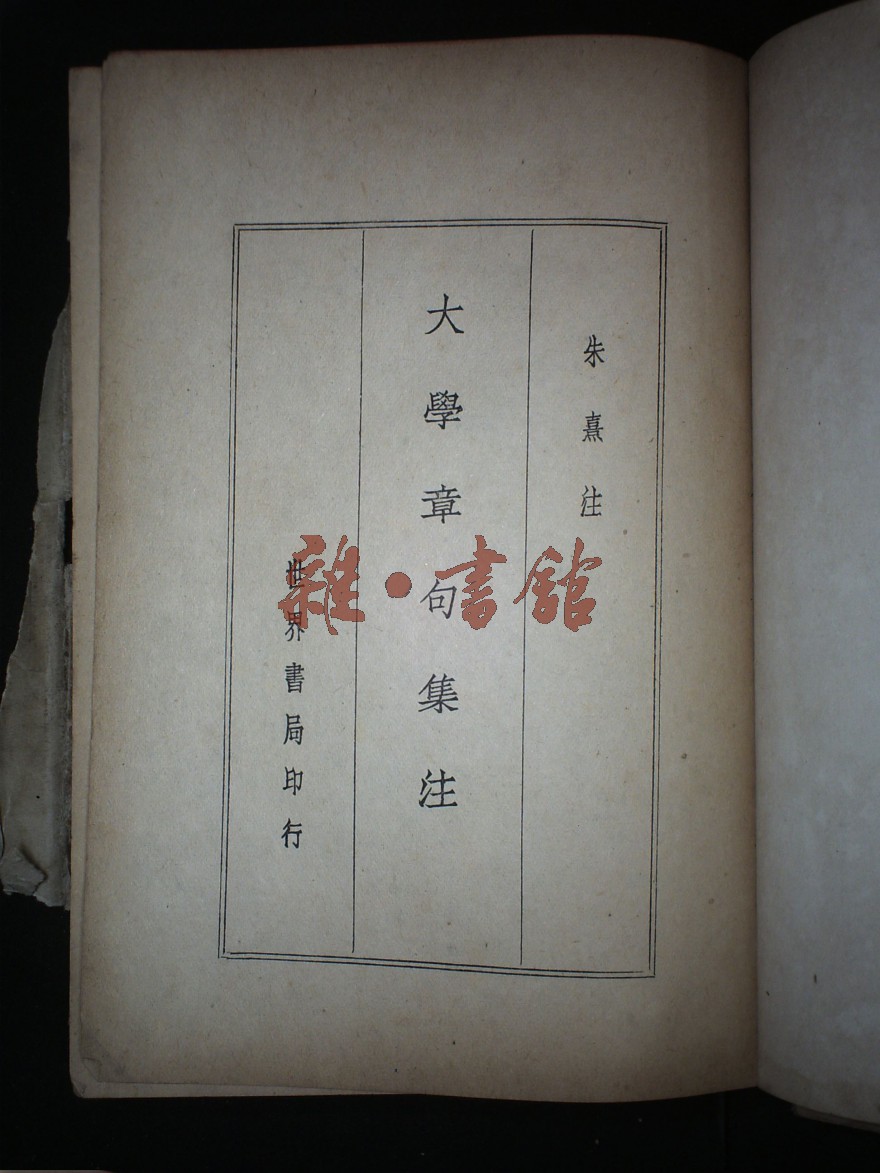 朱熹注
大學章句集注
世界書局印行
雜·書館